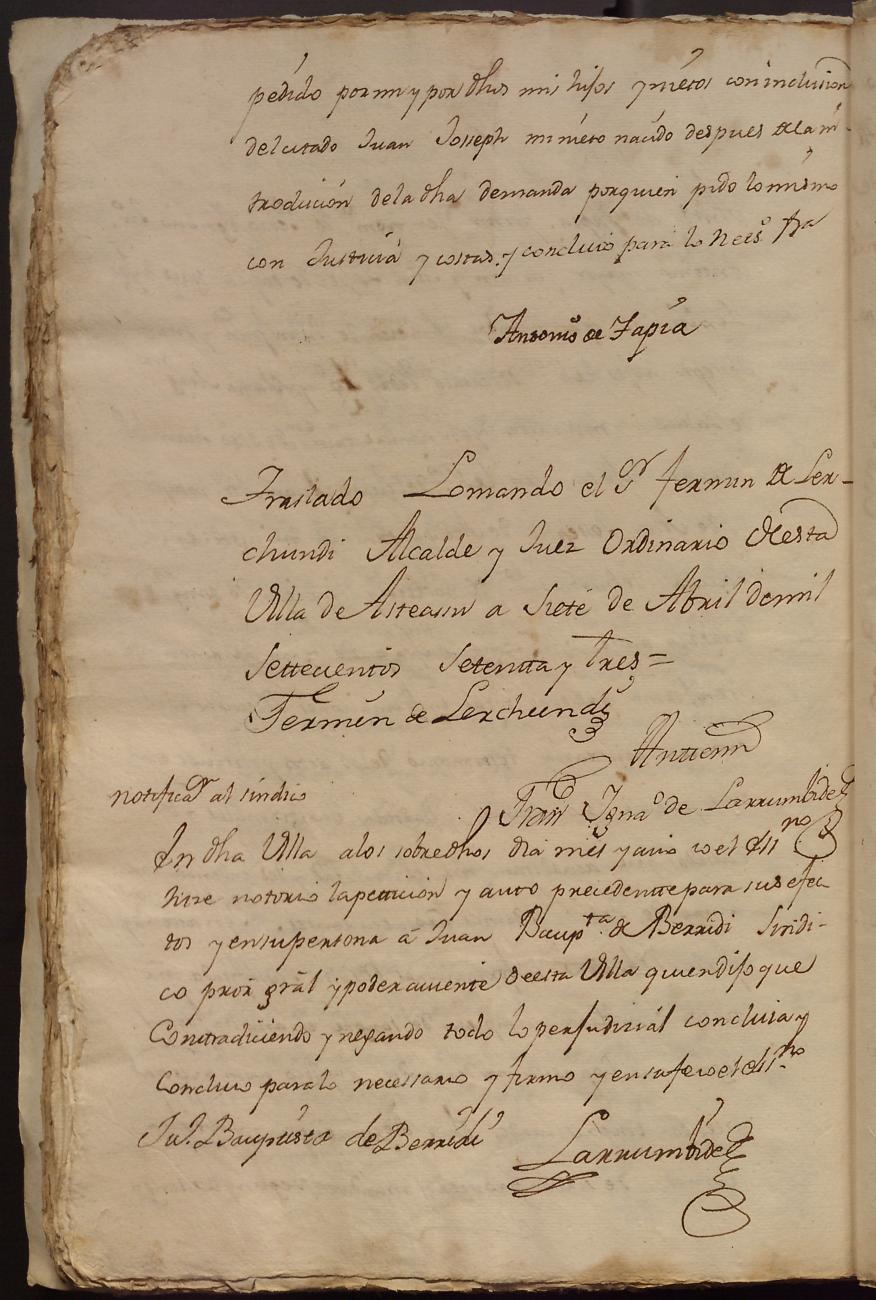 pedido por mi y por dhos mis hijos y nietos con inclusion
del citado Juan Joseph mi nieto nacido despues de la in-
troducion de la dha demanda por quien pido lo mismo
con Justicia y costas, y concluio para lo Neces.o
Antonio de Tapia
Traslado Lo mando el S.r fermin de Ler-
chundi Alcalde y Juez Ordinario de esta
Villa de Asteasu a siete de Abril de mil
settecientos setentta y tres =
Fermin de Lerchundi
Antte mi
Fran.co Igna.o de Larrumbide
notificaz.on al sindico
En dha Villa a los sobredhos dia mes y año io el ess.no
hize notorio la peticion y auto precedentte para sus efec
tos y en su persona a Juan Baup.ta de Berridi sindi-
co pror gral y poderaviente de esta Villa quien dijo que
Contradiciendo y negando todo lo perjudizial concluia y
Concluio para lo necessario y firmo y en su fe io el ess.no
Ju.n Baupista de Berridi
Larrumbide